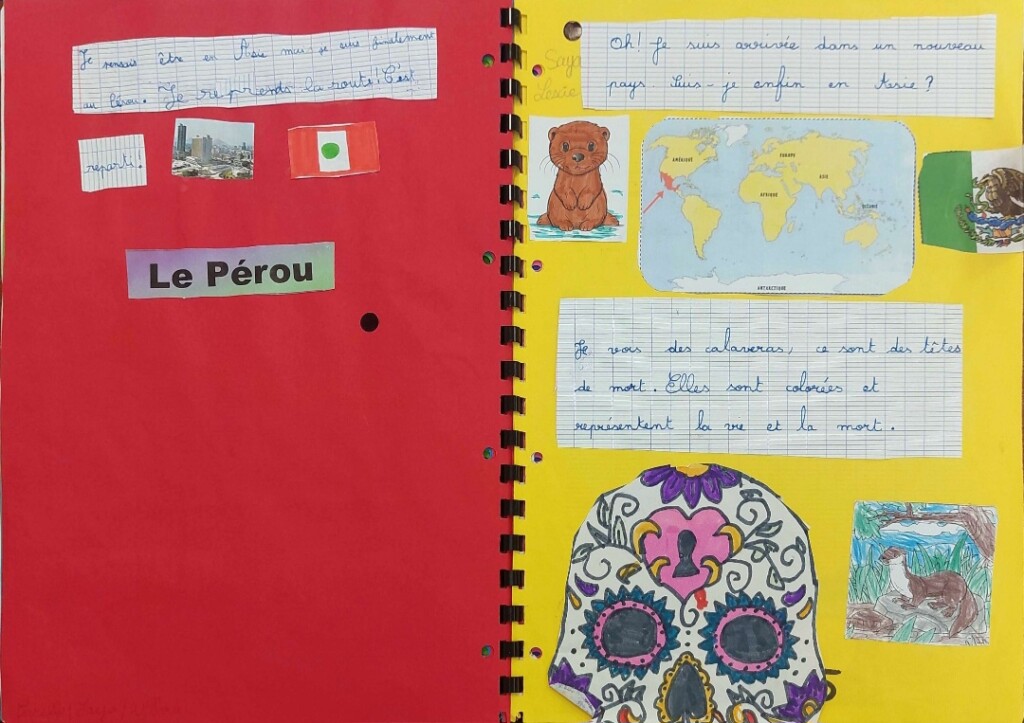 Je pensais être en Asie mais je suis finalement
au Pérou. Je reprends la route! C'est
reparti!
Le Pérou
Saya
Oh! Je suis arrivée dans un nouveau
pays. Suis-je enfin en Asie?
AMÉRIQUE
EUROPE
ASIE
AFRIQUE
OCÉANIE
ANTARCTIQUE
Je vois des calaveras, ce sont des têtes
de mort. Elles sont colorées et
représentent la vie et la mort.